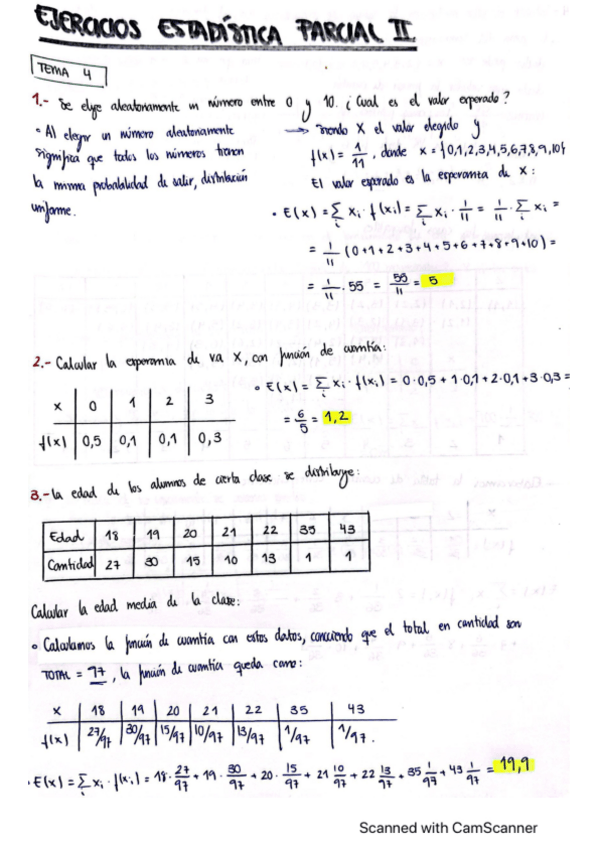 EJERCICIOS ESTADÍSTICA PARCIAL II
TEMA 4
1.- Se elige aleatoriamente un número entre 0 y 10. ¿Cual es el valor esperado?
• Al elegir un número aleatoriamente
significa que todos los números tienen
la misma probabilidad de salir, distribución
uniforme.
→ Siendo X el valor elegido y
f(x) = 1/11, donde x = {0,1,2,3,4,5,6,7,8,9,10}
El valor esperado es la esperanza de X:
• E(x) = Σ xi · f(xi) = Σ xi · 1/11 = 1/11 · Σ xi =
i i i
= 1/11 (0+1+2+3+4+5+6+7+8+9+10) =
= 1/11 · 55 = 55/11 = 5
2.- Calcular la esperanza de va X, con función de cuantía:
x 0 1 2 3
f(x) 0,5 0,1 0,1 0,3
• E(x) = Σ xi · f(xi) = 0·0,5 + 1·0,1 + 2·0,1 + 3·0,3 =
i
= 6/5 = 1,2
3.- La edad de los alumnos de cierta clase se distribuye:
Edad 18 19 20 21 22 35 43
Cantidad 27 30 15 10 13 1 1
Calcular la edad media de la clase:
• Calculamos la función de cuantía con estos datos, conociendo que el total en cantidad son
TOTAL = 97, la función de cuantía queda como:
x 18 19 20 21 22 35 43
f(x) 27/97 30/97 15/97 10/97 13/97 1/97 1/97.
• E(x) = Σ xi · f(xi) = 18·27/97 + 19·30/97 + 20·15/97 + 21 10/97 + 22 13/97 + 35 1/97 + 43 1/97 = 19,9
i
Scanned with CamScanner